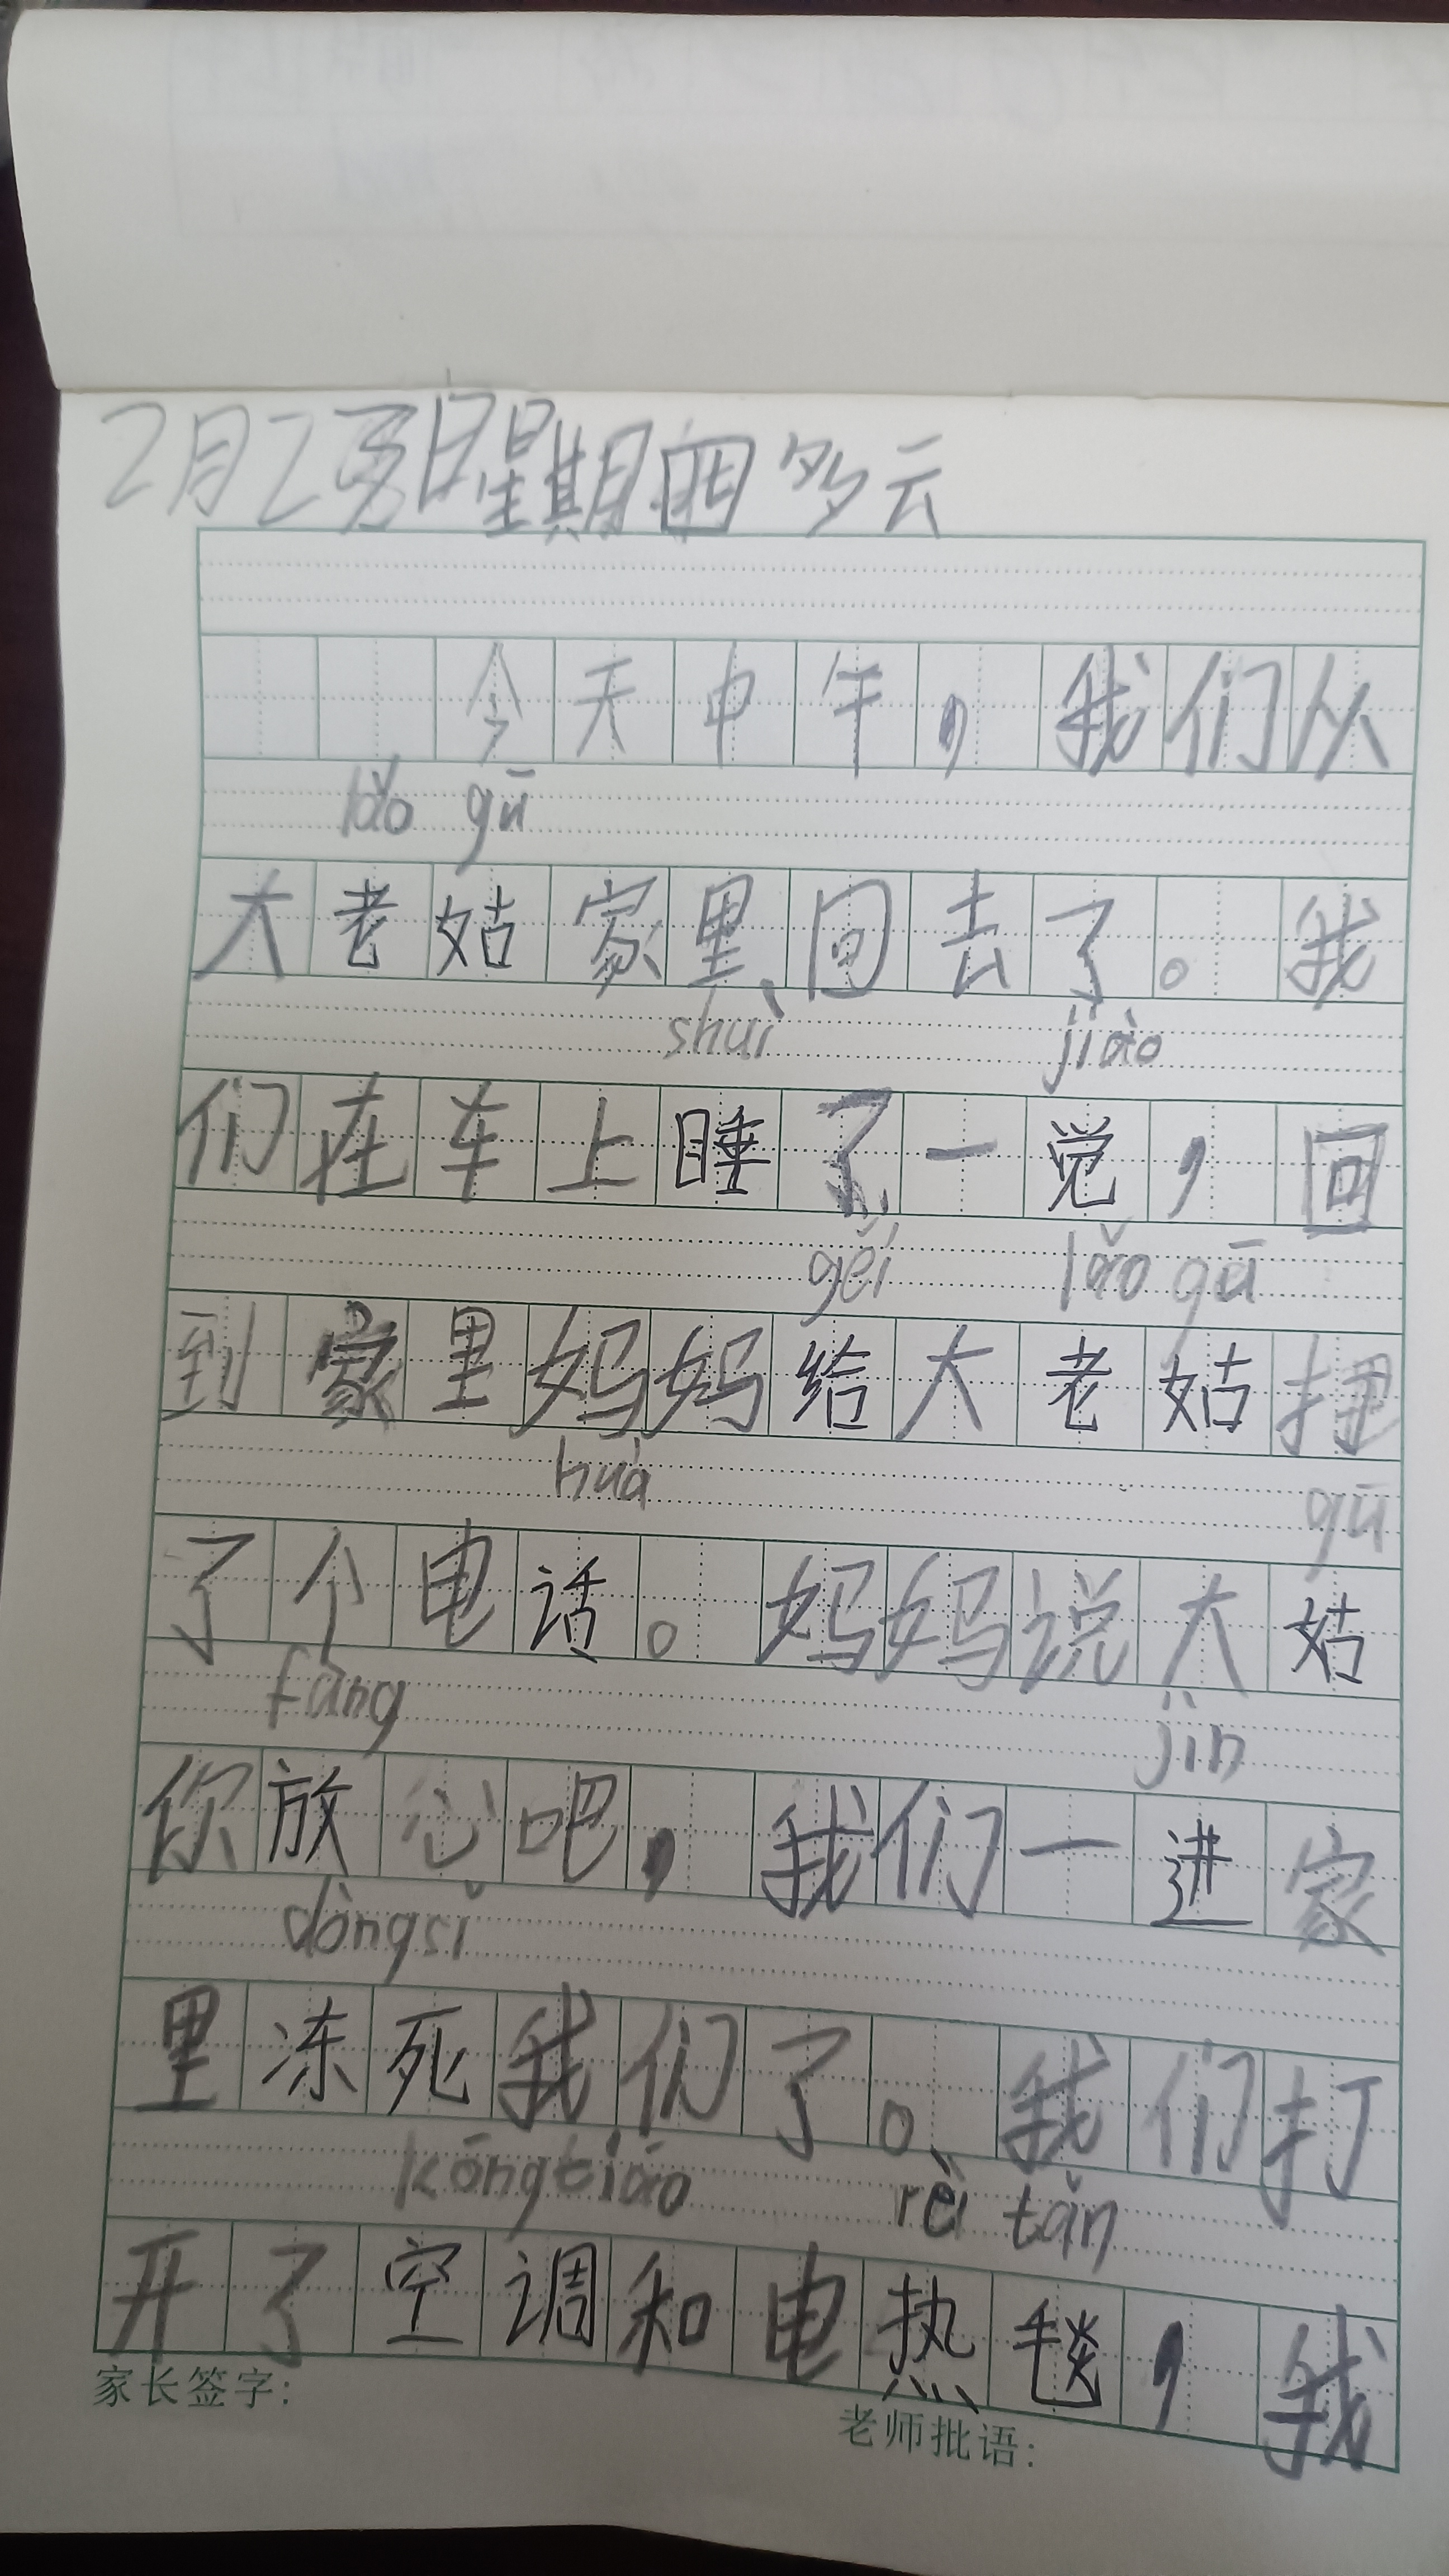 2月2日星期四 多云
今天中午，我们从
lǎo gū
大老姑家里回去了。我
shuì jiào
们在车上睡了一觉，回
gěi lǎo gū
到家里妈妈给大老姑打
huà gū
了个电话。妈妈说大姑
fàng jìn
你放心吧，我们一进家
dòng sǐ
里冻死我们了。我们打
kōng tiáo rè tǎn
开了空调和电热毯，我
家长签字：
老师批语：